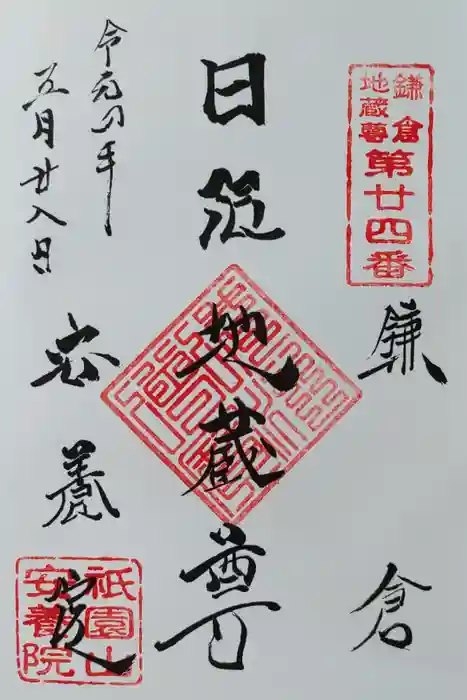 鎌倉
地蔵尊
第廿四番
鎌倉
日限地蔵尊
令和元年
五月廿八日
安養院
祇園山
安養院